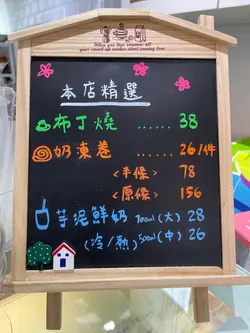 When you type summer all
your stand-up wishes start coming true
本店精選
布丁燒 ...... 38
奶東卷 ...... 26/件
<半條> 78
<原條> 156
芋泥鮮奶 700ml(大) 28
(冷/熱) 500ml(中) 26